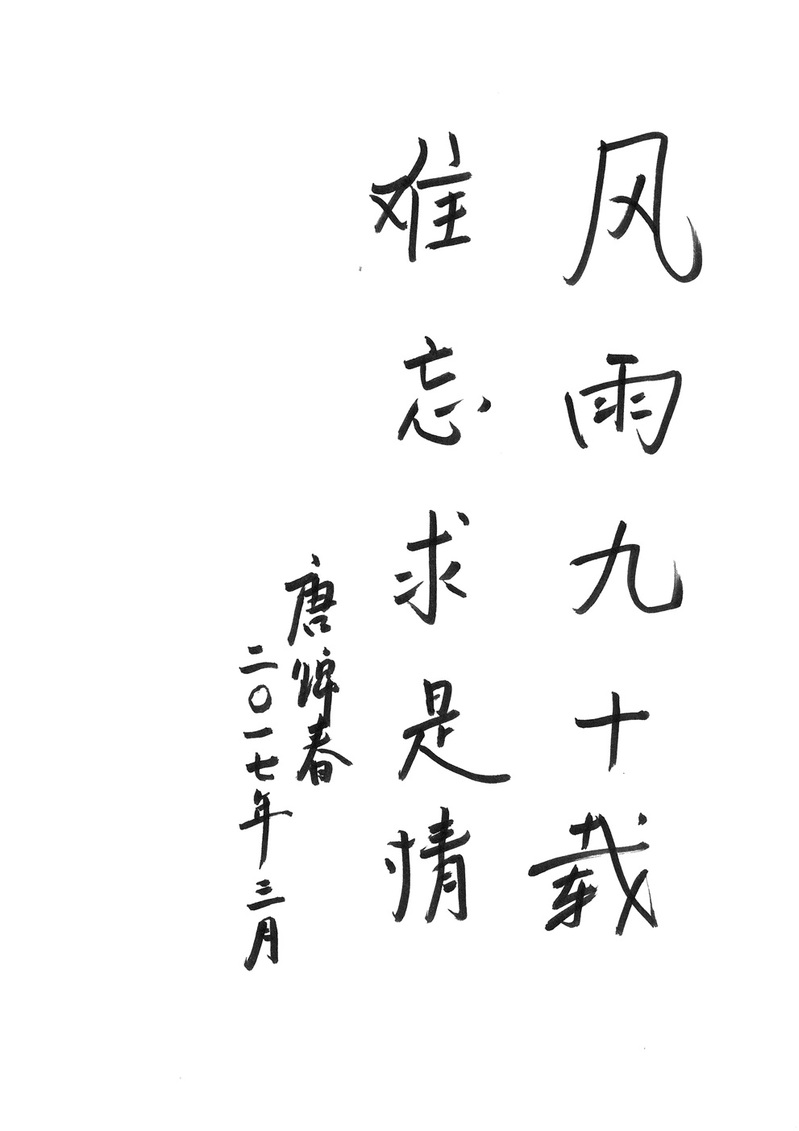 风雨九十载
难忘求是情
唐 春
二〇一七年三月